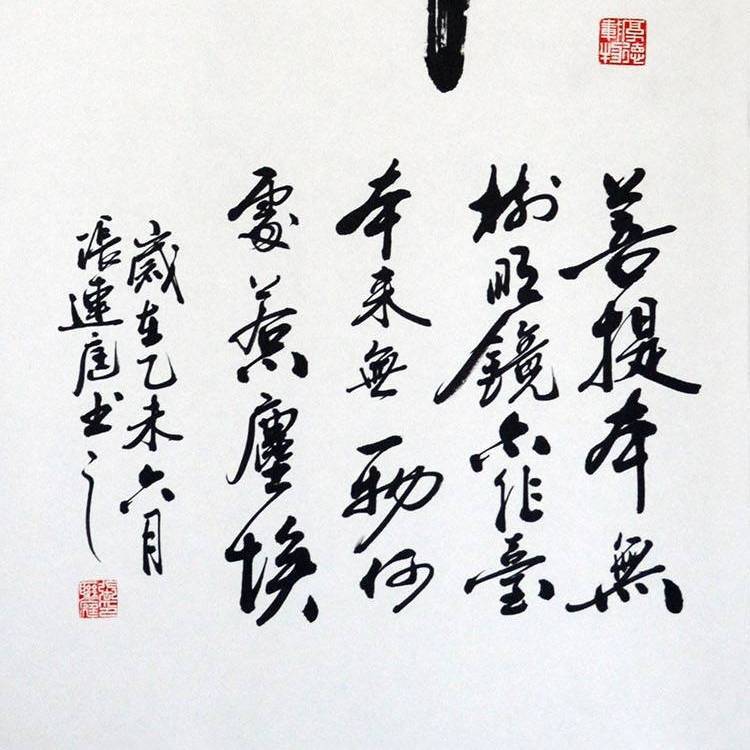 厚德載物
菩提本無
樹明鏡亦非臺
本來無一物何
處惹塵埃
歲在乙未六月
張連庭书之